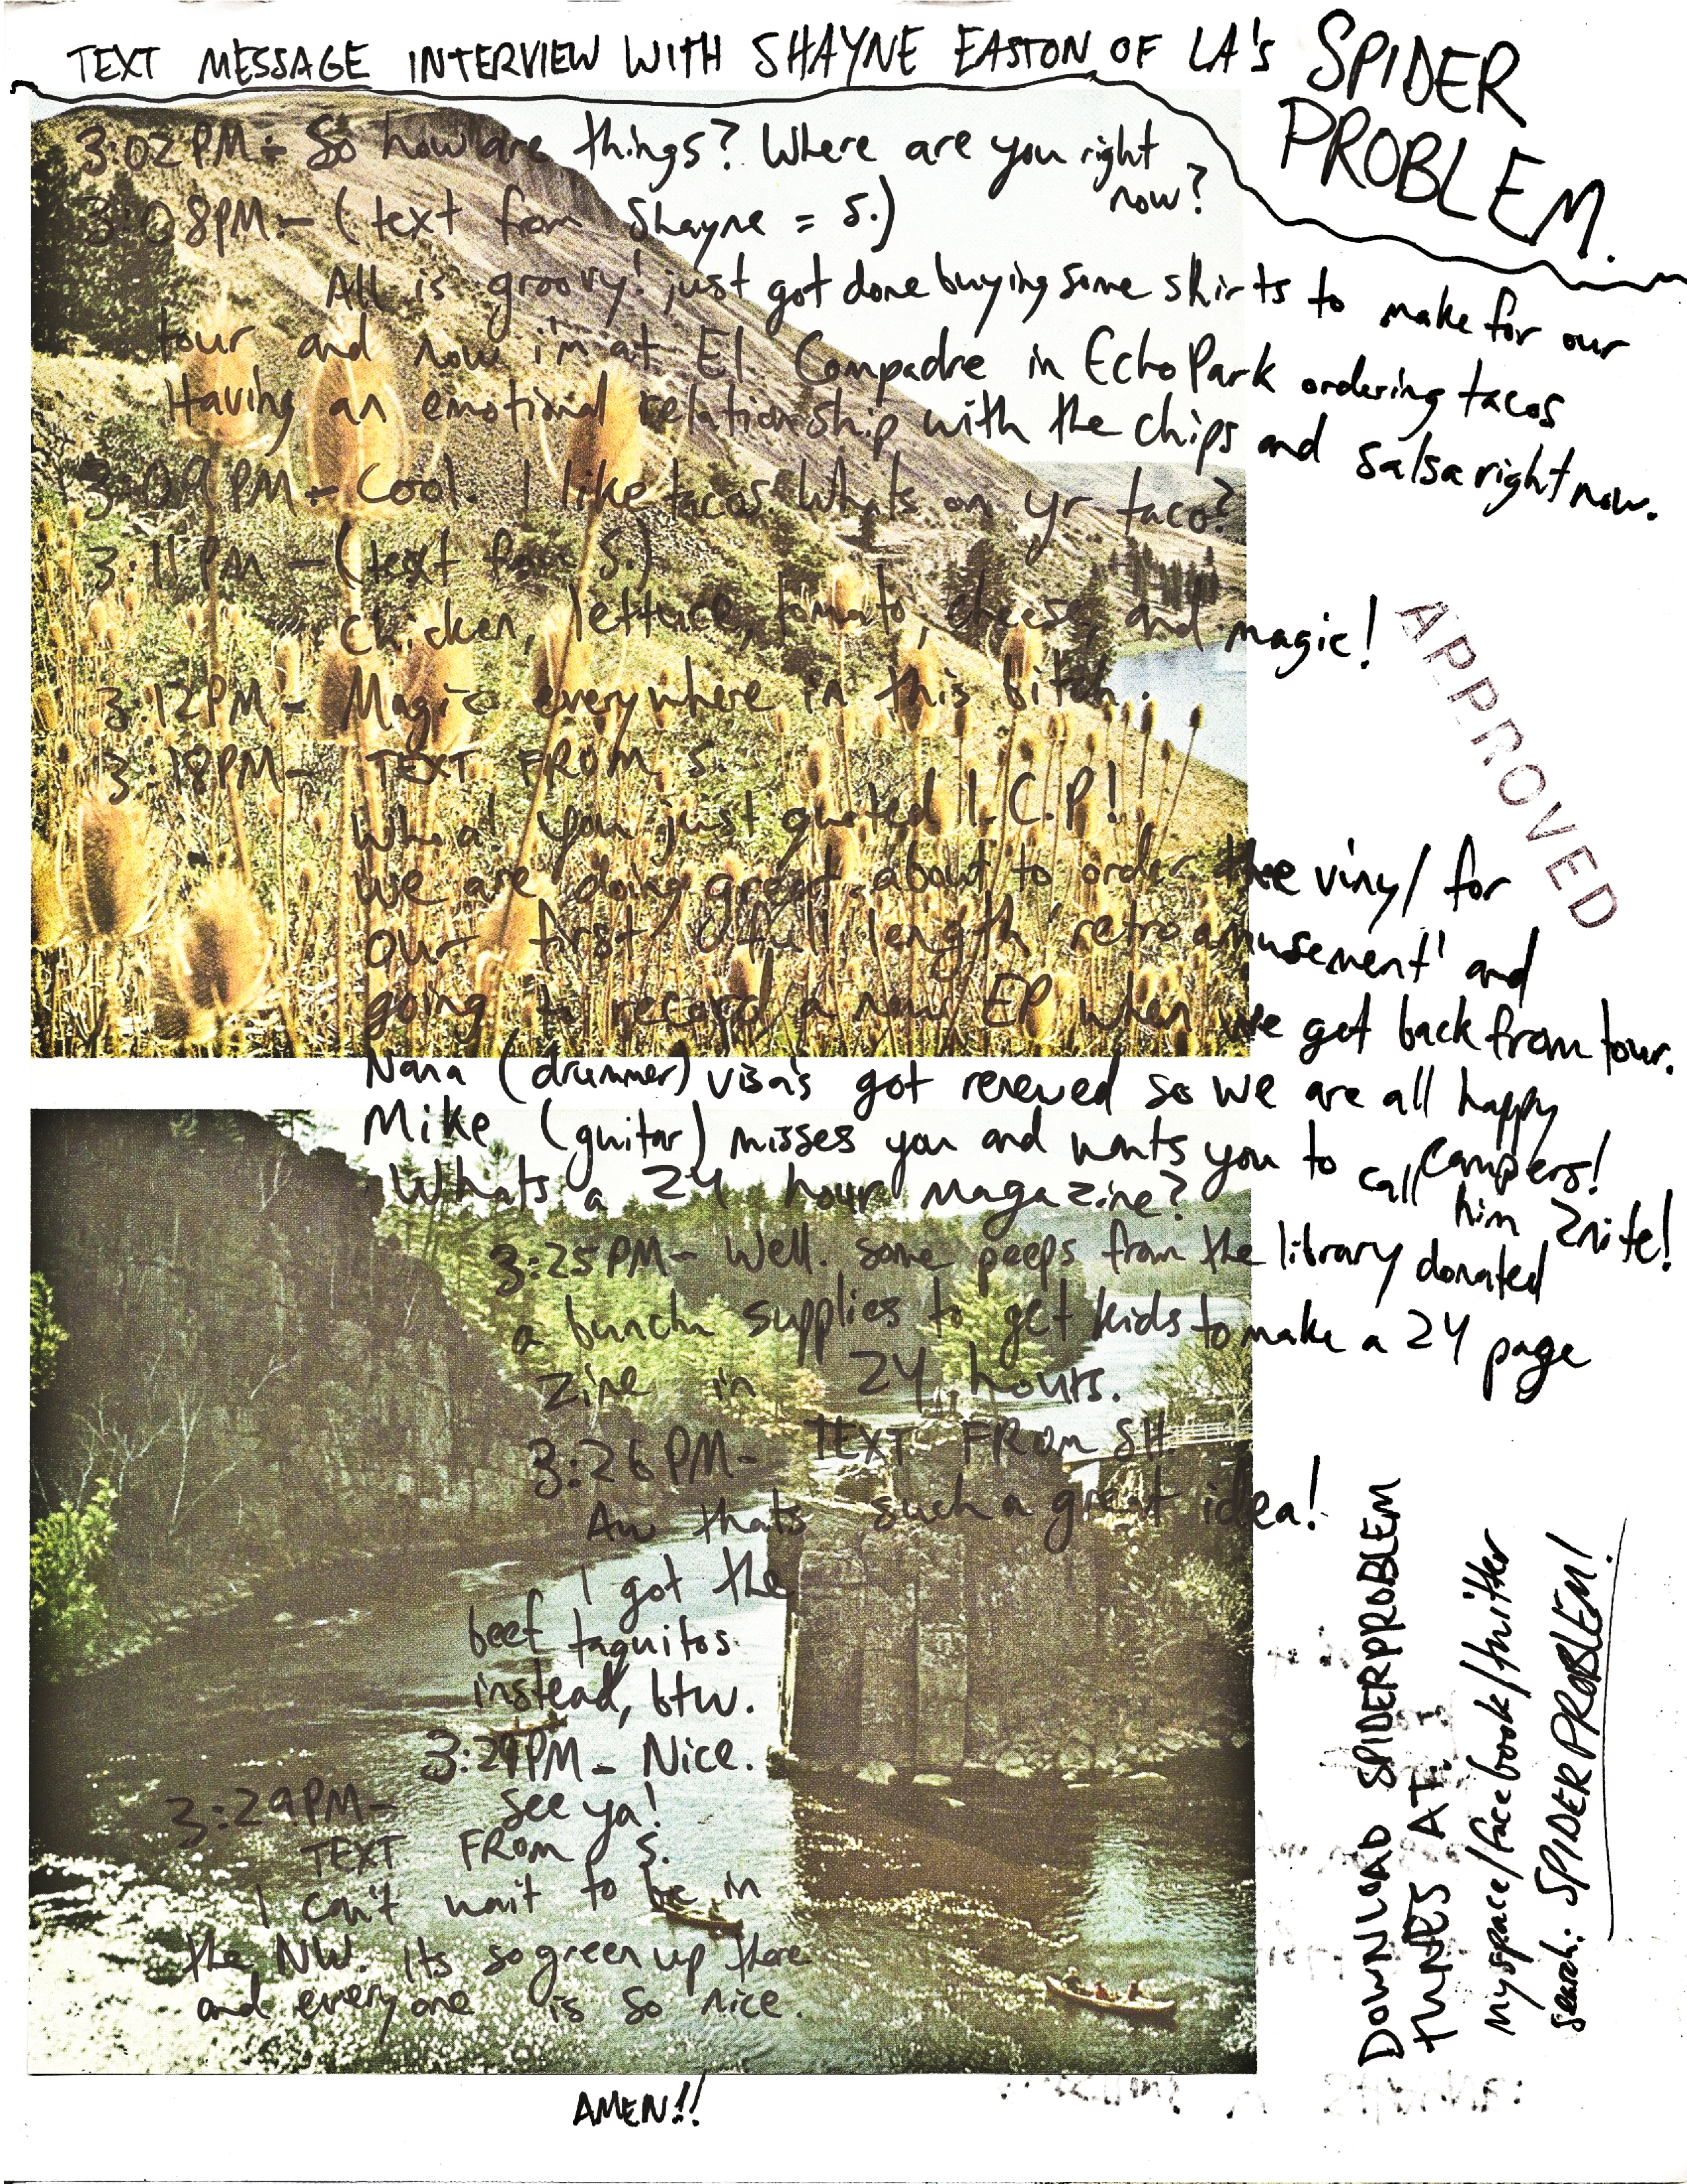 TEXT MESSAGE INTERVIEW WITH SHAYNE EASTON OF LA's SPIDER
PROBLEM.
3:02PM - So how are things? Where are you right
now?
3:08PM - (text from Shayne = S.)
All is groovy! just got done buying some shirts to make for our
tour and now i'm at El Compadre in Echo Park ordering tacos
Having an emotional relationship with the chips and salsa right now.
3:09PM - Cool. I like tacos. Whats on yr taco?
3:11PM - (text from S.)
Chicken, lettuce, tomato, cheese, and magic!
3:12PM - Magic everywhere in this bitch.
3:18PM - TEXT FROM S.
Whoa! you just quoted I.C.P!
We are doing great. about to order the vinyl for
our first full length 'retro amusement' and
going to record a new EP when we get back from tour.
Nana (drummer) visa's got renewed so we are all happy
campers!
Mike (guitar) misses you and wants you to call
him 2nite!
Whats a 24 hour magazine?
3:25PM - Well. some peeps from the library donated
a buncha supplies to get kids to make a 24 page
zine in 24 hours.
3:26PM - TEXT FROM SH.
Aw thats such a great idea!
I got the
beef taquitos
instead, btw.
3:29PM - Nice.
See ya!
3:29PM -
TEXT FROM S.
I can't wait to be in
the NW. Its so green up there
and everyone is so nice.
AMEN!!
APPROVED
DOWNLOAD SPIDERPROBLEM
TUNES AT:
myspace/facebook/twitter
search: SPIDERPROBLEM!